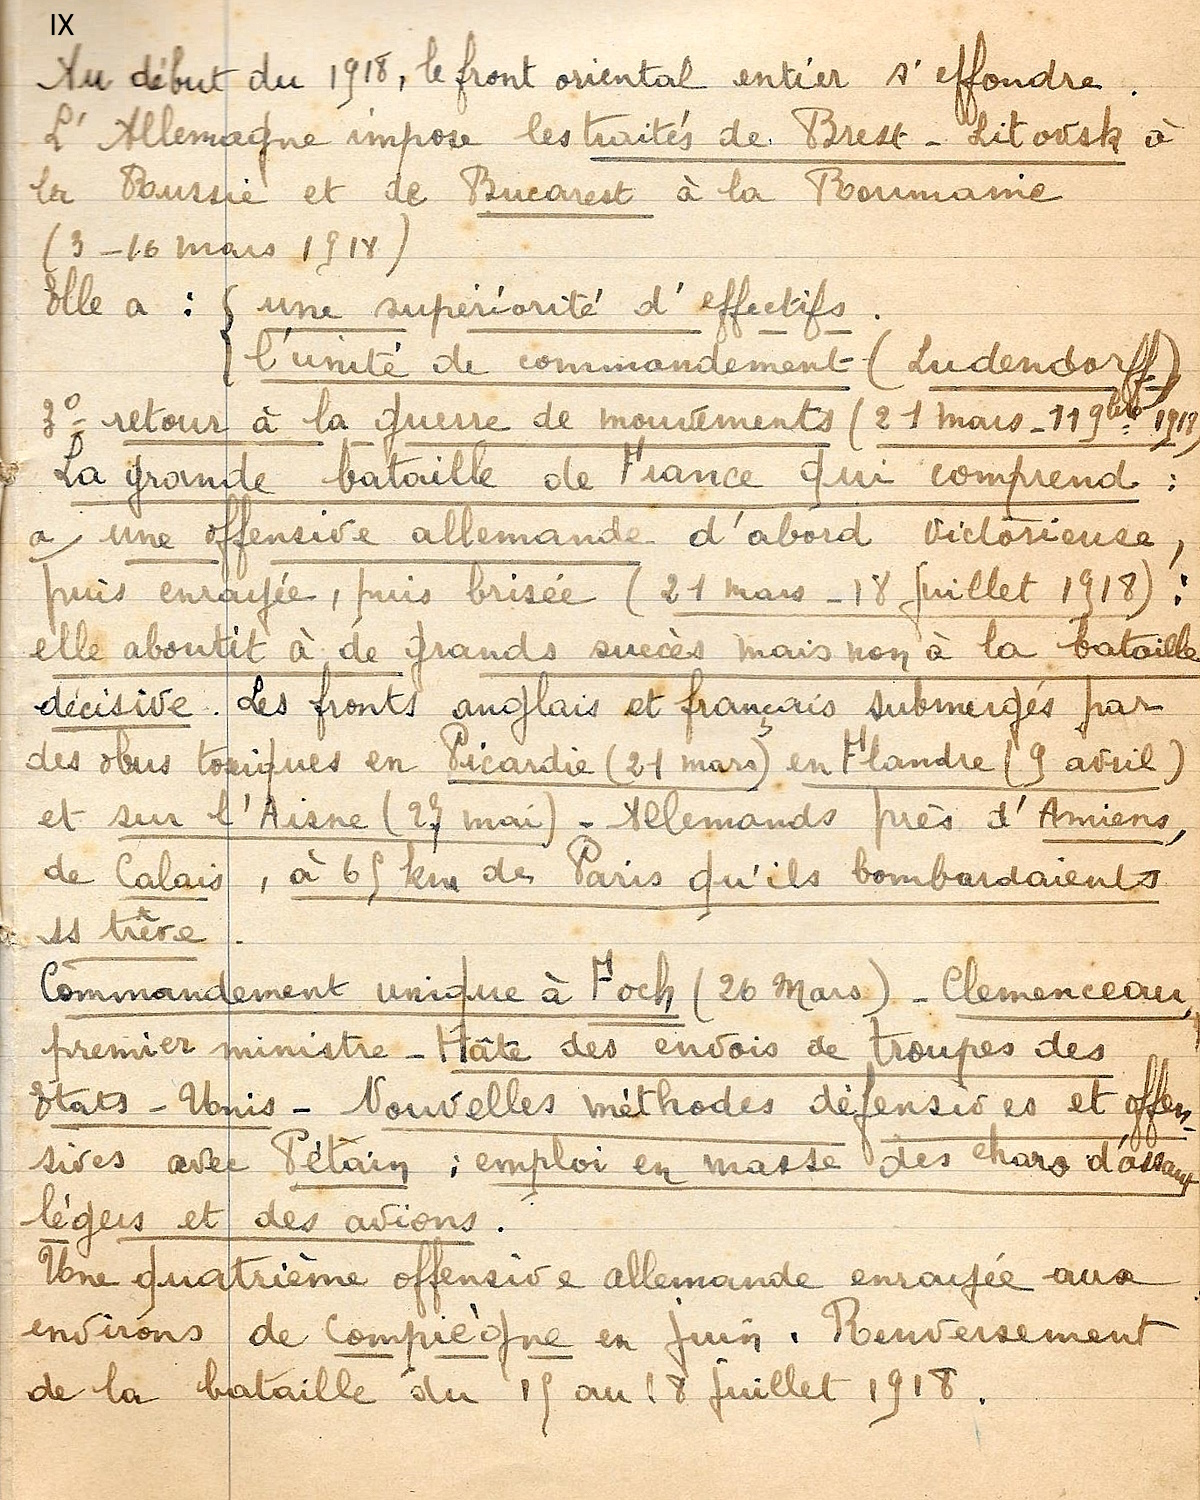 IX
Au début du 1918, le front oriental entier s'effondre.
L'Allemagne impose les traités de Brest-Litovsk à
la Russie et de Bucarest à la Roumanie
(3-16 mars 1918)
Elle a : { une supériorité d'effectifs.
l'unité de commandement (Ludendorff)
3º retour à la guerre de mouvements (21 mars-11 9bre 1918)
La grande bataille de France qui comprend :
a/ une offensive allemande d'abord victorieuse,
puis enrayée, puis brisée (21 mars-18 juillet 1918) :
elle aboutit à de grands succès mais non à la bataille
décisive. Les fronts anglais et français submergés par
des obus toxiques en Picardie (21 mars) en Flandre (9 avril)
et sur l'Aisne (27 mai) - Allemands près d'Amiens,
de Calais, à 65 km de Paris qu'ils bombardaients
ss trève.
Commandement unique à Foch (26 Mars) - Clemenceau,
premier ministre - Hâte des envois de troupes des
Etats-Unis - Nouvelles méthodes défensives et offen-
sives avec Pétain ; emploi en masse des chars d'assaut
légers et des avions.
Une quatrième offensive allemande enrayée aux
environs de Compiègne en juin. Renversement
de la bataille du 15 au 18 juillet 1918.